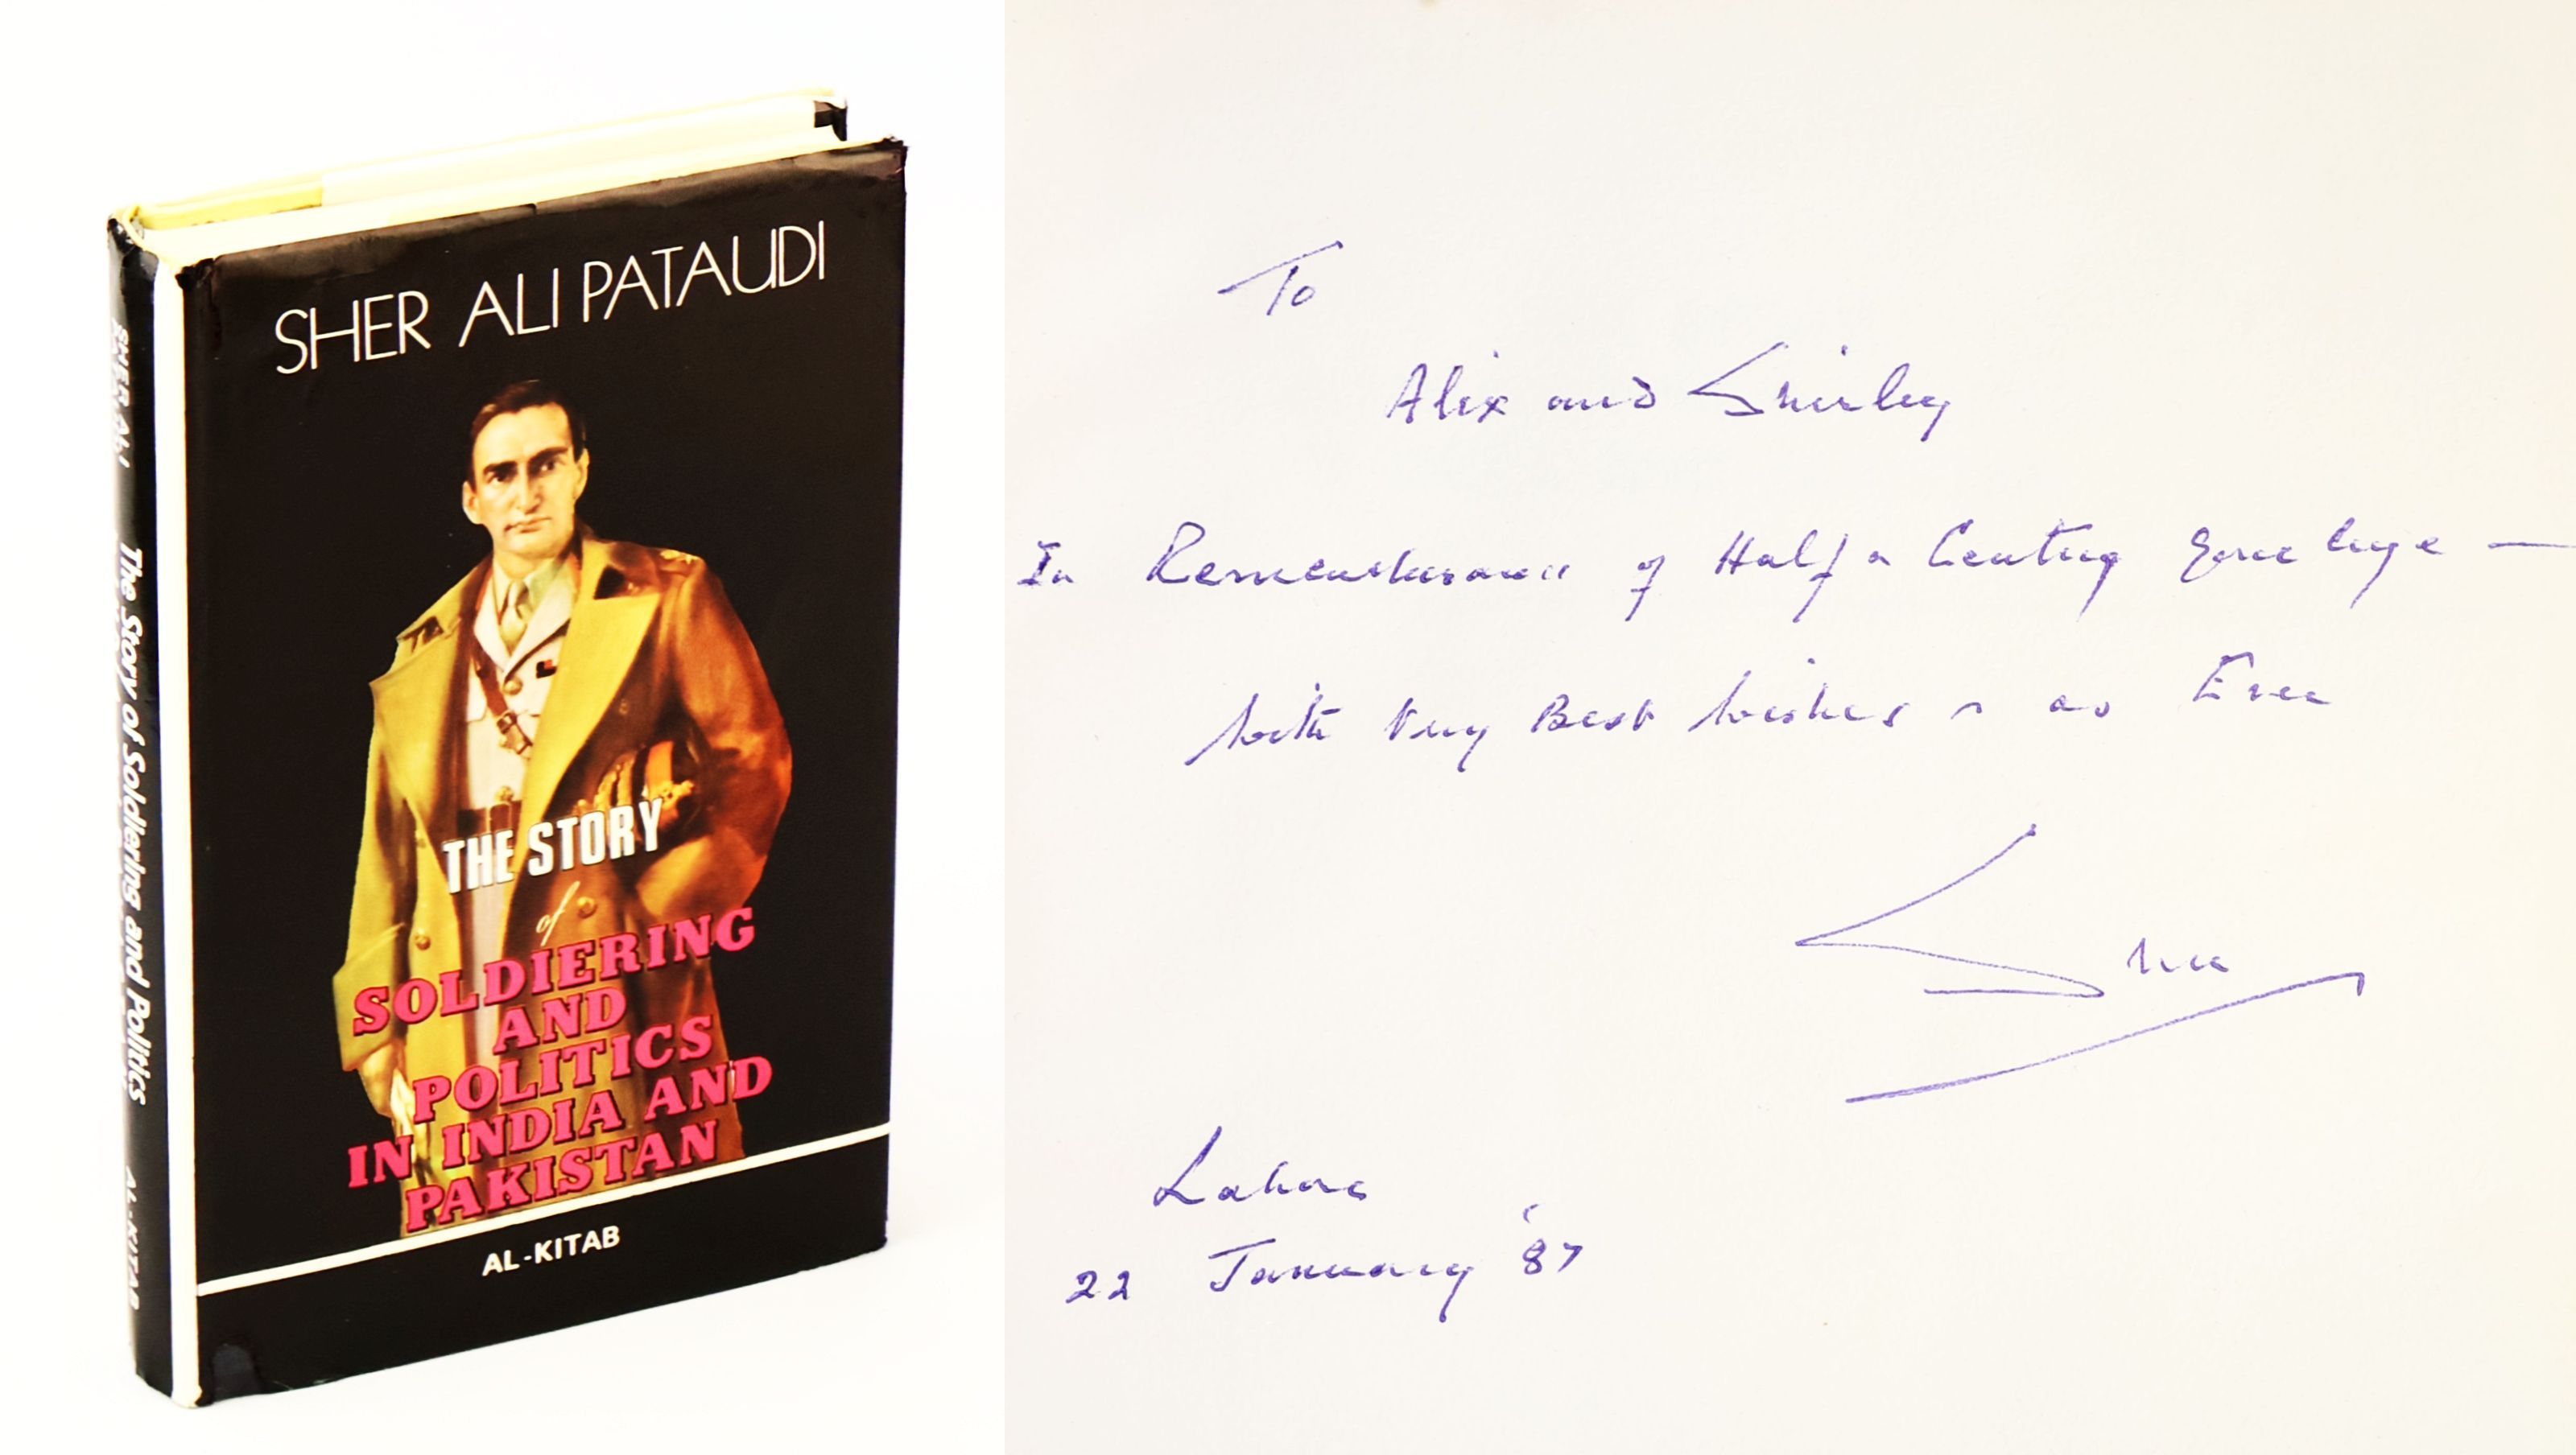 SHER ALI PATAUDI
THE STORY
of
SOLDIERING
AND
POLITICS
IN INDIA AND
PAKISTAN
AL-KITAB
SHER ALI
The Story of Soldiering and Politics
AL-KITAB
To
Alix and Shirley
In Remembrance of Half a Century gone bye —
with Very Best wishes & as Ever
Sher
Lahore
22 January '87